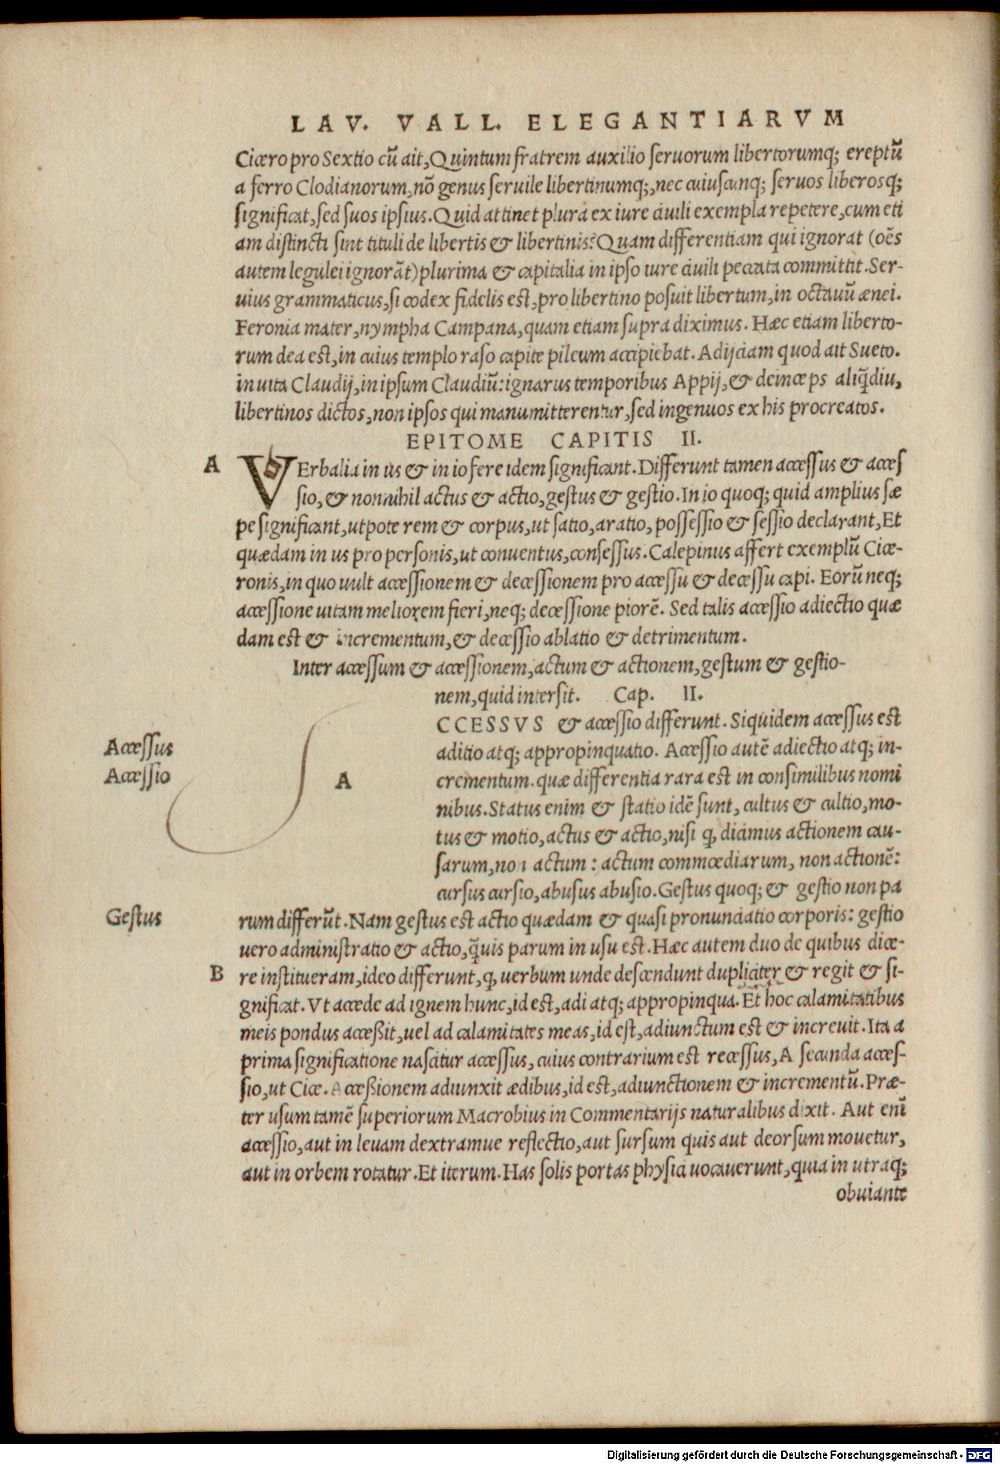 LAV. VALL. ELEGANTIARVM
Cicero pro Sextio cũ ait, Quintum fratrem auxilio seruorum libertorumq; ereptũ
a ferro Clodianorum, nõ genus seruile libertinumq;, nec cuiuscunq; seruos liberosq;
significat, sed suos ipsius. Quid attinet plura ex iure ciuili exempla repetere, cum eti
am distincti sint tituli de libertis & libertinis? Quam differentiam qui ignorat (oẽs
autem legulei ignorãt) plurima & capitalia in ipso iure ciuili peccata committit. Ser-
uius grammaticus, si codex fidelis est, pro libertino posuit libertum, in octauũ ænei.
Feronia mater, nympha Campana, quam etiam supra diximus. Hæc etiam liberto-
rum dea est, in cuius templo raso capite pileum accipiebat. Adijciam quod ait Sueto.
in uita Claudij, in ipsum Claudiũ: ignarus temporibus Appij, & deinceps aliq̃diu,
libertinos dictos, non ipsos qui manumitterentur, sed ingenuos ex his procreatos.
EPITOME CAPITIS II.
A VErbalia in us & in io fere idem significant. Differunt tamen accessus & acces
sio, & nonnihil actus & actio, gestus & gestio. In io quoq; quid amplius sæ
pe significant, utpote rem & corpus, ut satio, aratio, possessio & sessio declarant, Et
quædam in us pro personis, ut conuentus, consessus. Calepinus affert exemplũ Cice-
ronis, in quo uult accessionem & decessionem pro accessu & decessu capi. Eorũ neq;
accessione uitam meliorem fieri, neq; decessione piorẽ. Sed talis accessio adiectio quæ
dam est & incrementum, & decessio ablatio & detrimentum.
Inter accessum & accessionem, actum & actionem, gestum & gestio-
nem, quid intersit. Cap. II.
CCESSVS & accessio differunt. Siquidem accessus est
Accessus aditio atq; appropinquatio. Accessio autẽ adiectio atq; in-
Accessio A crementum. quæ differentia rara est in consimilibus nomi
nibus. Status enim & statio idẽ sunt, cultus & cultio, mo-
tus & motio, actus & actio, nisi ꝙ dicimus actionem cau-
sarum, non actum: actum commœdiarum, non actionẽ:
cursus cursio, abusus abusio. Gestus quoq; & gestio non pa
Gestus rum differũt. Nam gestus est actio quædam & quasi pronunciatio corporis: gestio
uero administratio & actio, q̃uis parum in usu est. Hæc autem duo de quibus dice-
B re institueram, ideo differunt, ꝙ uerbum unde descendunt dupliciter & regit & si-
gnificat. Vt accede ad ignem hunc, id est, adi atq; appropinqua. Et hoc calamitatibus
meis pondus acceßit, uel ad calamitates meas, id est, adiunctum est & increuit. Ita a
prima significatione nascitur accessus, cuius contrarium est recessus, A secunda acces-
sio, ut Cice. Acceßionem adiunxit ædibus, id est, adiunctionem & incrementũ. Præ-
ter usum tamẽ superiorum Macrobius in Commentarijs naturalibus dixit. Aut enĩ
accessio, aut in leuam dextramue reflectio, aut sursum quis aut deorsum mouetur,
aut in orbem rotatur. Et iterum. Has solis portas physici uocauerunt, quia in utraq;
obuiante
Digitalisierung gefördert durch die Deutsche Forschungsgemeinschaft - DFG